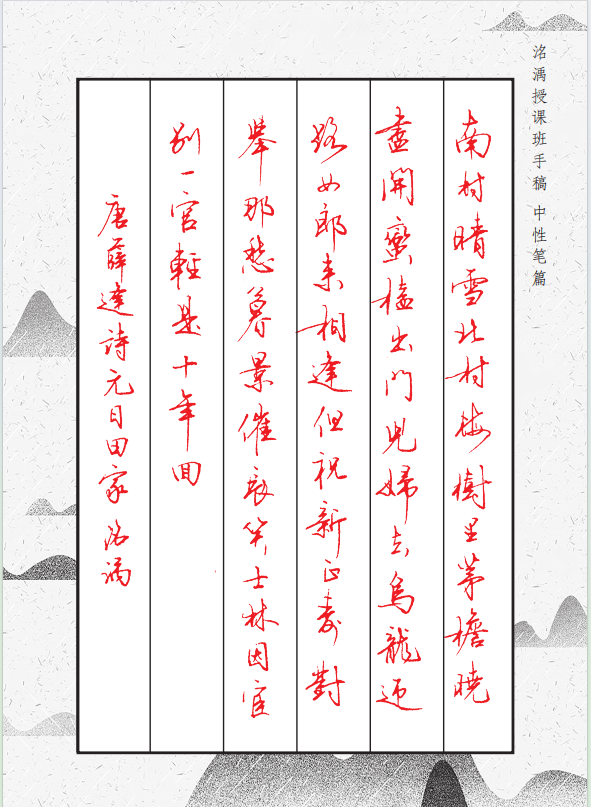 洺湡授课班手稿 中性笔篇
南村晴雪北村梅樹里茅檐曉
盡開蠻榼出門兒婦去烏龍迎
路女郎来相逢但祝新正壽對
舉那愁暮景催長笑士林因宦
別一官輕是十年回
唐薛達詩元日田家 洺湡